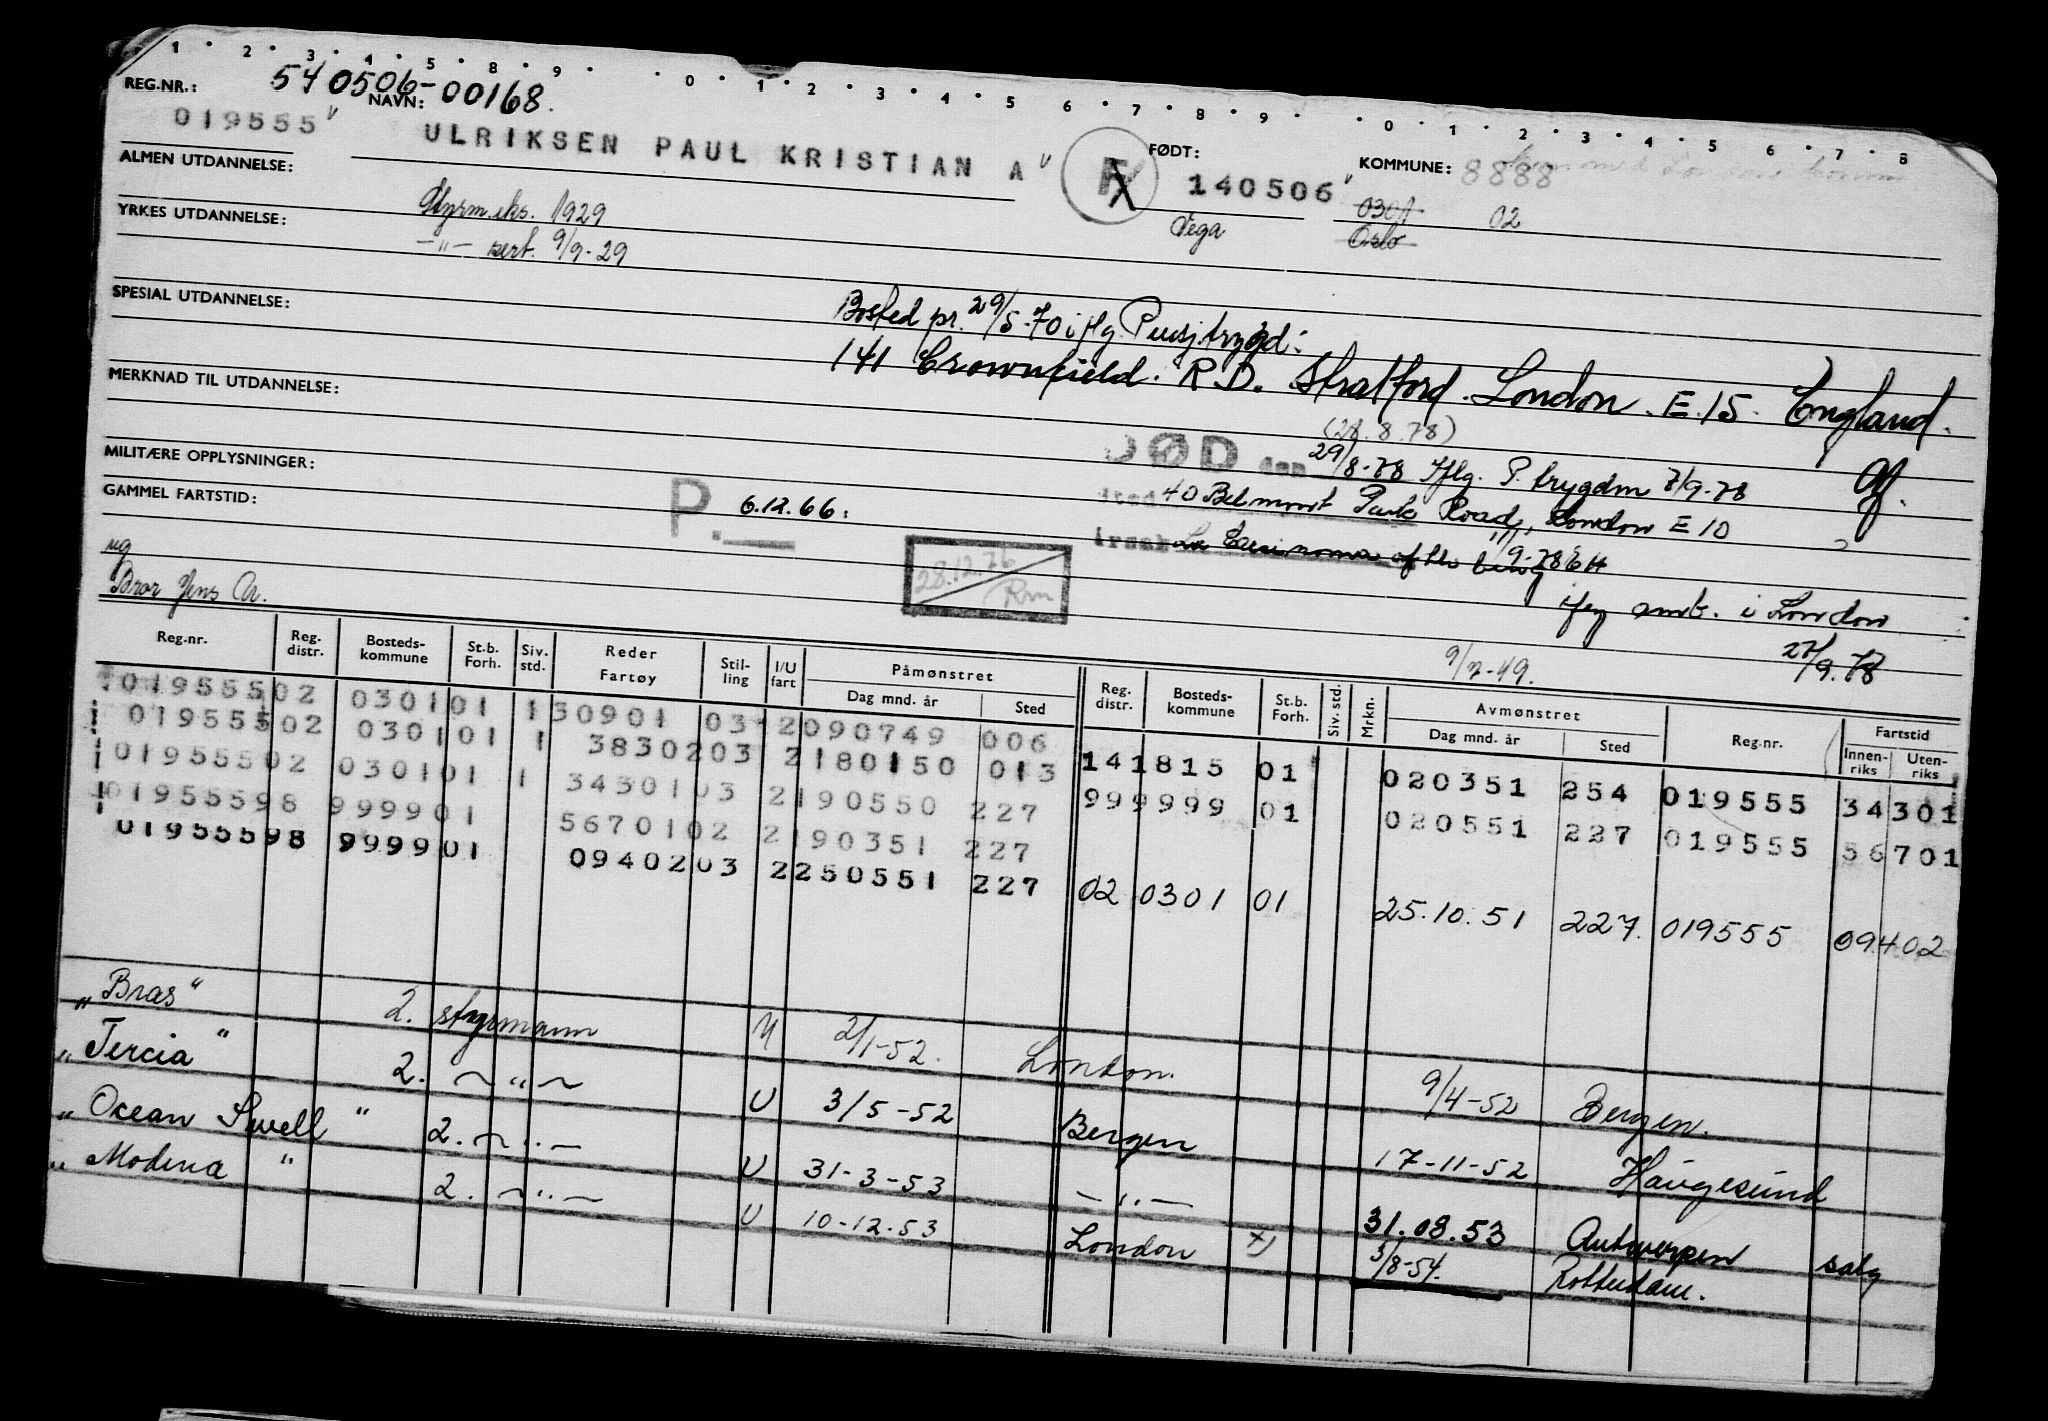 1 . 2 . 3 . 4 . 5 . 8 . 9 . . 0 . 1 . 2 . 3 . 4 . 5 . 6 . 7 . 8 . 9 . . 0 . 1 . 2 . 3 . 4 . 5 . 6 . 7 . 8
REG.NR.: 540506-00168.
019555 NAVN: ULRIKSEN PAUL KRISTIAN A FØDT: 140506 KOMMUNE: 8888
ALMEN UTDANNELSE: Vega 0301 02
YRKES UTDANNELSE: Styrm.eks. 1929 Oslo
—"— sert. 9/9-29
SPESIAL UTDANNELSE:
Bosted pr. 29/5-70 iflg. Pensj.trygd:
141 Crownfield. R.D. Stratford. London. E.15. England.
MERKNAD TIL UTDANNELSE:
(28.8.78)
DØD den 29/8-78 Iflg. P. trygdm 7/9-78
MILITÆRE OPPLYSNINGER:
sted 40 Belmont Park Road, London E 10
GAMMEL FARTSTID: P. 6.12.66:
årsak 11/9-78 GH
28.12.76 Rm
ifg amb. i London
27/9.78
Bror Jens A.
9/7-49.
Reg.nr. Reg. distr. Bosteds-kommune St.b. Forh. Siv. std. Reder Fartøy Stil-ling I/U fart Påmønstret Dag mnd. år Sted Reg. distr. Bosteds-kommune St.b. Forh. Siv. std. Mrkn. Avmønstret Dag mnd. år Sted Reg.nr. Fartstid Innen-riks Uten-riks
019555 02 0301 01 1 30901 03 2 090749 006
019555 02 0301 01 1 38302 03 2 180150 013 14 1815 01 020351 254 019555 34301
019555 02 0301 01 1 34301 03 2 190550 227 99 9999 01 020551 227 019555 56701
019555 98 9999 01 56701 02 2 190351 227
019555 98 9999 01 09402 03 2 250551 227 02 0301 01 25.10.51 227. 019555 09402
"Bras" 2. styrmann U 2/1-52. London. 9/4-52 Bergen.
"Tercia" 2. —"— U 3/5-52 Bergen 17-11-52 Haugesund
"Ocean Swell" 2. —"— U 31-3-53 —"— 31.08.53 Antwerpen salg
"Modena" 2. —"— U 10-12-53 London x) 3/8-54. Rotterdam.